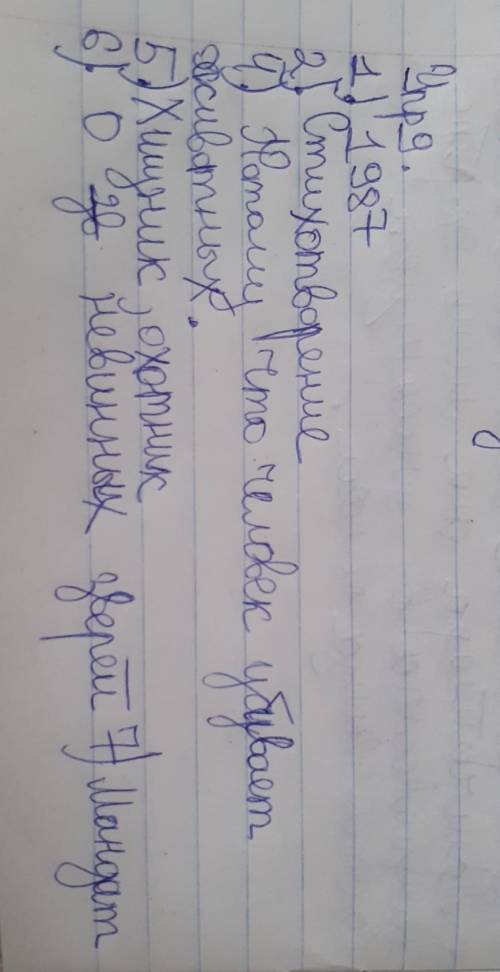 Упр 9.
1). 1987
2). Стихотворение
4) Потому что человек убивает
животных.
5.) Хищник, охотник
6). О невинных зверей 7) Мандат